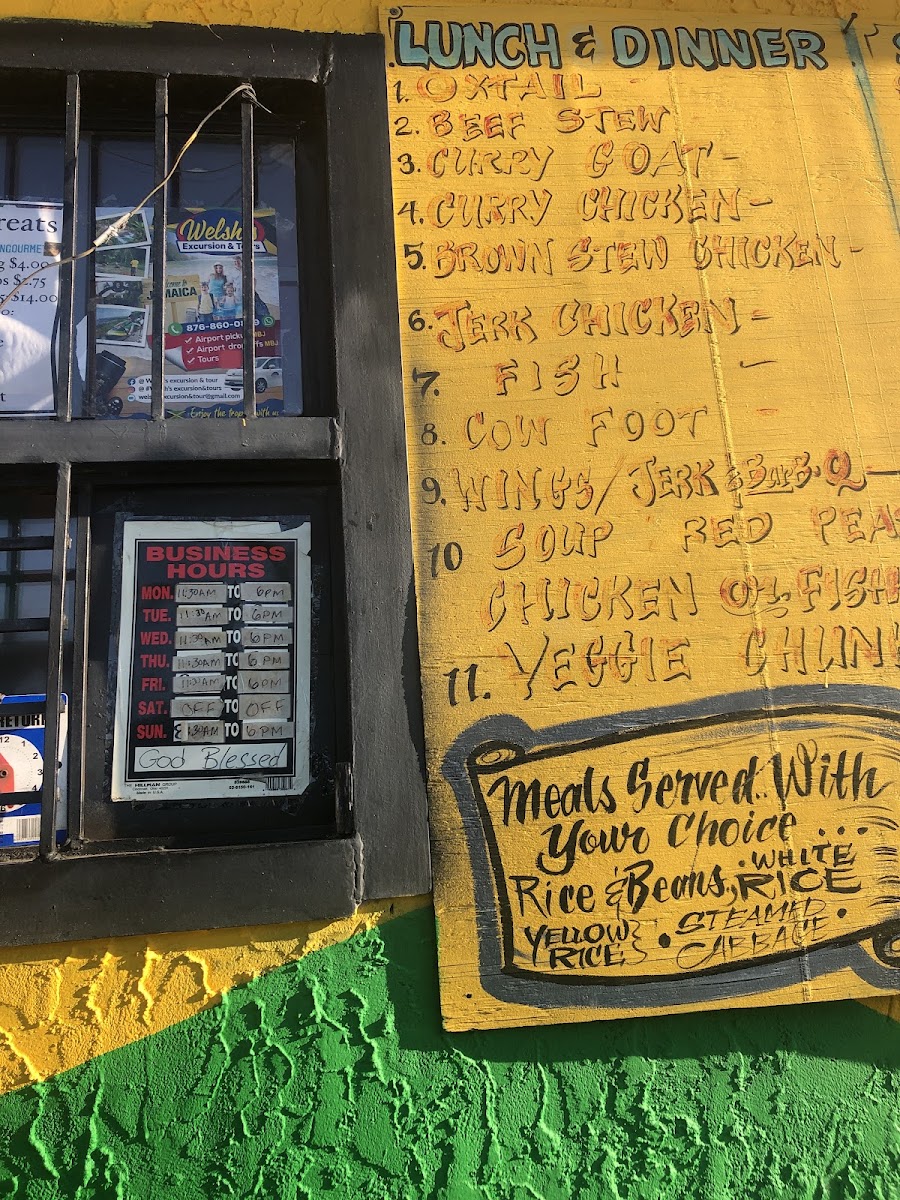 LUNCH & DINNER
1. OXTAIL -
2. BEEF STEW
3. CURRY GOAT -
4. CURRY CHICKEN -
5. BROWN STEW CHICKEN -
6. JERK CHICKEN -
7. FISH -
8. COW FOOT -
9. WINGS / JERK & BARB.Q -
10 SOUP RED PEA
CHICKEN OR FISH
11. VEGGIE CHUN
Meals Served.. With
Your Choice ...
Rice & Beans, WHITE RICE
YELLOW RICE STEAMED CABBAGE
reats
NCOURME
g $4.00
s $2.75
$14.00
o:
Welsh's
Excursion & Tours
JAMAICA
876-860-0
Airport pick MBJ
Airport dro ffs MBJ
Tours
@ W sh's excursion & tour
@ # sh's excursion&tours
wels xcursion&tour@gmail.com
Enjoy the trop with us
BUSINESS
HOURS
MON. 11:30AM TO 6PM
TUE. 11:30AM TO 6PM
WED. 11:30AM TO 6PM
THU. 11:30AM TO 6PM
FRI. 11:30AM TO 6PM
SAT. OFF TO OFF
SUN. :30AM TO 6PM
God Blessed
THE HILLMAN GROUP
Made in U.S.A.
RETUR
12
1
2
3
4
5